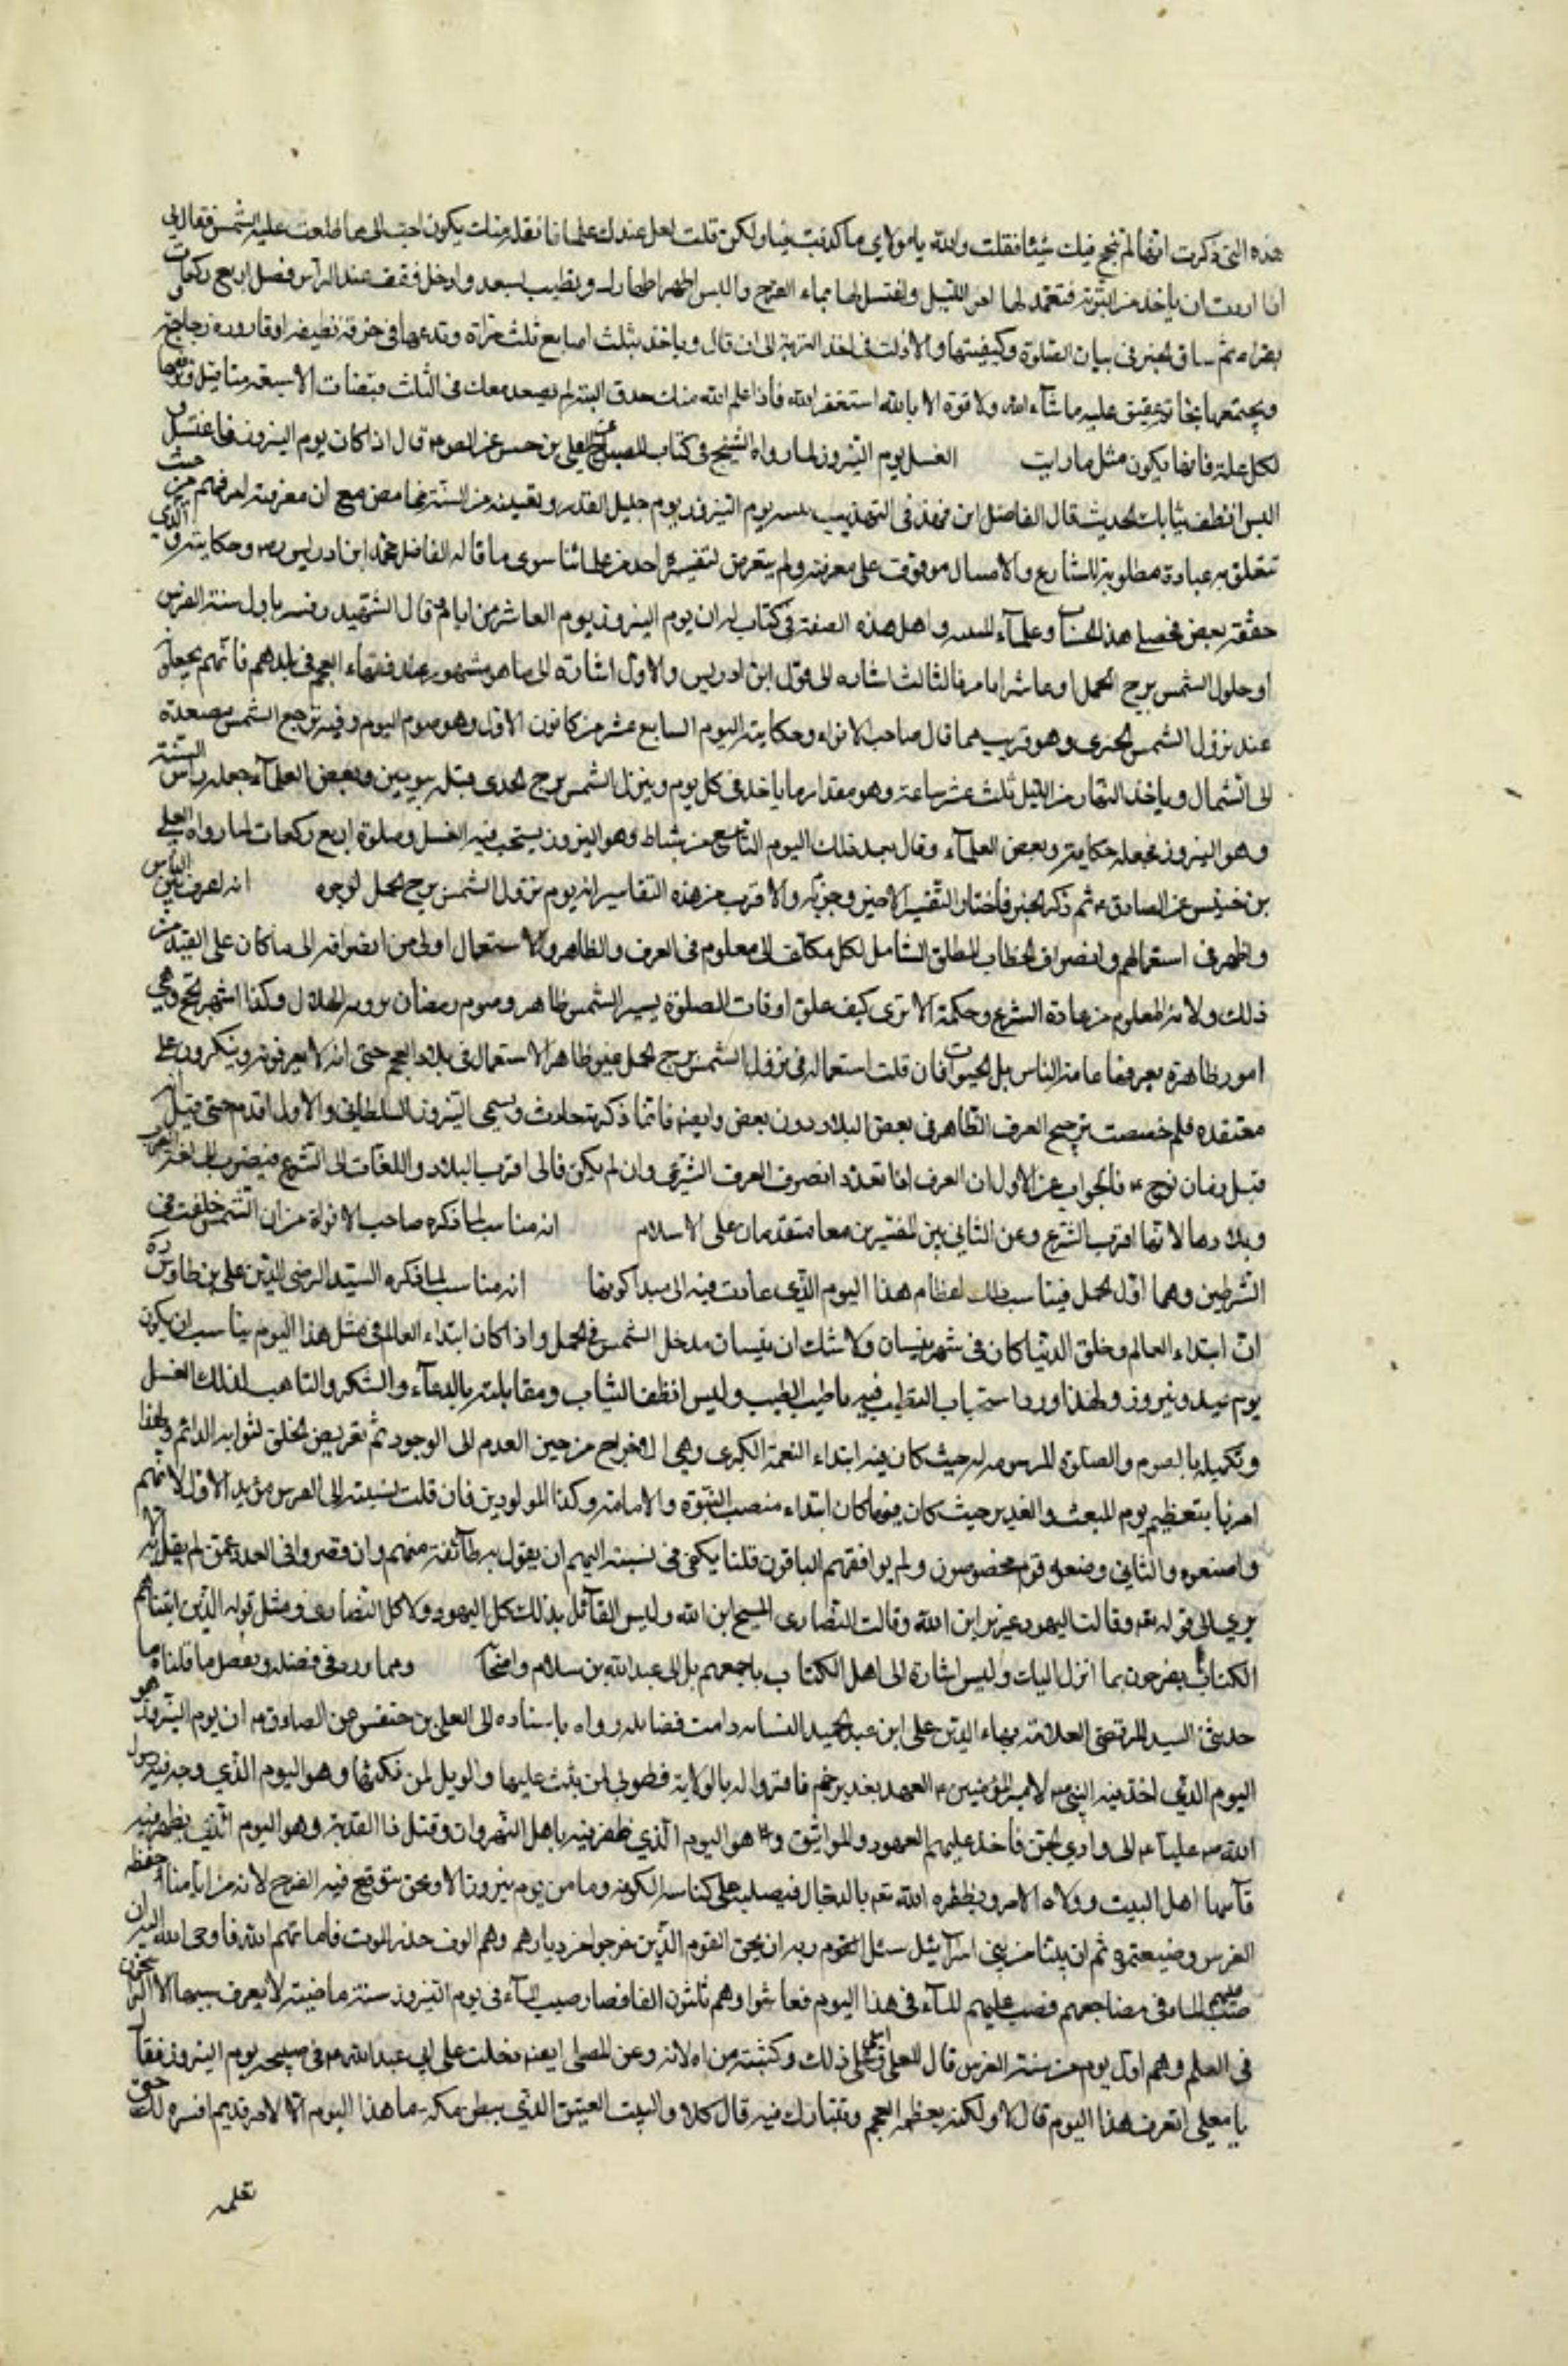 هذه التي ذكرت انها لم تنجع فيك شيئا فقلت والله يا مولاي ما كذبت فيها ولكن قلت لعل عندك علما فانقله منك يكون احب الى مما طلعت عليه الشمس فقال لى
اذا اردت ان ياخذ من التربة فتعمد لها اخر الليل واغتسل لها بماء القرح والبس اطهر اطهارك وتطيب بسعد وادخل فقف عند الراس فصل اربع ركعات
يقراء ثم ساق الخبر فى بيان الصلوة وكيفيتها والاذن فى اخذ التربة الى ان قال وياخذ بثلث اصابع ثلث مراة وتدعها فى خرقة نظيفة او قارورة زجاجة
ويختمها بخاتم عقيق عليه ما شآء الله ولا قوة الا بالله استغفر الله فاذا علم الله منك صدق النية لم يصعد معك فى الثلث قبضات الا سبعة مثاقيل
لكل علة فانها يكون مثل ما رايت الغسل يوم النيروز لما رواه الشيخ فى كتاب المصباح قال اذا كان يوم النيروز فاغتسل
البس انظف ثيابك الحديث قال الفاضل ابن فهد فى التهذيب يوم النيروز يوم جليل القدر وتعيينه من السنة غامض مع ان معرفته امر مهم من حيث
تتعلق به عبادة مطلوبة للشارع والامتثال موقوف على معرفته ولم يتعرض لتفسيره احد من علمائنا سوى ما قاله الفاضل محمد ابن ادريس ره وحكايته والذى
حققه بعض محصلى هذا الحساب وعلمآء واهل هذه الصنعة فى كتاب له ان يوم النيروز يوم العاشر من ايار قال الشهيد وفسر باول سنة الفرس
او حلول الشمس برج الحمل او عاشر ايار فالثالث اشاره الى قول ابن ادريس والاول اشارة الى ما هو مشهور عند فقهاء العجم فى بلدهم فانهم يجعلونه
عند نزول الشمس الجدى وهو قريب مما قال صاحب الانواء وحكايته اليوم السابع عشر من كانون الاول وهو صوم اليوم وفيه ترجع الشمس مصعدة
الى الشمال وياخذ النهار من الليل ثلث عشر ساعة وهو مقدار ما ياخذ فى كل يوم وينزل الشمس برج الجدى قبله بيومين وبعض العلمآء جعله راس السنة
وهو النيروز فجعله حكاية وبعض العلمآء وقال بعد ذلك اليوم التاسع من شباط وهو النيروز يستحب فيه الغسل وصلوة اربع ركعات لما رواه المعلى
بن خنيس عن الصادق ع ثم ذكر الخبر فاختار التفسير الاخير وجزم به والاقرب من هذه التفاسير انه يوم نزول الشمس برج الحمل لوجوه انه اعرف بين الناس
واظهر فى استعمالهم وانصراف الخطاب المطلق الشامل لكل مكلف الى معلوم فى العرف والظاهر والاستعمال اولى من انصرافه الى ما كان على
ذلك ولانه المعلوم من عادة الشرع وحكمته الا ترى كيف علق اوقات الصلوة بسير الشمس ظاهر وصوم رمضان برويه الهلال وكذا اشهر الحج وهى
امور ظاهرة يعرفها عامة الناس بل الحيوانات فان قلت استعماله فى نزول الشمس برج الحمل غير ظاهر الاستعمال فى بلاد العجم حتى انه لا يعرفونه وينكرون على
معتقده فلم خصصت ترجيح العرف الظاهر فى بعض البلاد دون بعض وايضا فانما ذكرته حادث ويسمى النيروز السلطانى والاول اقدم حتى قيل انه
قبل زمان نوح ع فالجواب عن الاول ان العرف اذا تعدد انصرف العرف الشرعى وان لم يكن فالى اقرب البلاد واللغات الى الشرع فيصرف الى لغة العرب
وبلادها لانها اقرب الى الشرع وعن الثانى بين المفسرين معا متقدمان على الاسلام انه مناسب لما ذكره صاحب الانواء من ان الشمس خلقت فى
الشرطين وهما اول الحمل فيناسب ذلك اعظام هذا اليوم الذى عادت فيه الى مبدا كونها انه مناسب لما ذكره السيد الرضى الدين على بن طاوس ره
ان ابتداء العالم وخلق الدنيا كان فى شهر نيسان ولا شك ان نيسان مدخل الشمس فى الحمل واذا كان ابتداء العالم فى مثل هذا اليوم يناسب ان يكون
يوم عيد ونيروز ولهذا ورد استحباب التطيب فيه باطيب الطيب ولبس انظف الثياب ومقابلته بالدعآء والشكر والتاهب لذلك الغسل
وتكميله بالصوم والصلوة المرسومة له حيث كان فيه ابتداء النعمة الكبرى وهى الاخراج من حين العدم الى الوجود ثم تعريض الخلق لثوابه الدائم ولهذا
امرنا بتعظيم يوم المبعث والغدير حيث كان فيهما كان ابتداء منصب النبوة والامامة وكذا المولودين فان قلت نسبته الى الفرس مؤيد الاول لانهم
واضعوه والثانى وضعه قوم مخصوصون ولم يوافقهم الباقون قلنا يكفى فى نسبته اليهم ان يقول به طآئفة منهم وان قصروا فى العدد عن لم يقل به الا
يرى الى قوله تعه وقالت اليهود عزير ابن الله وقالت النصارى المسيح ابن الله وليس القائل بذلك كل اليهود ولا كل النصارى ومثل قوله الذين اتيناهم
الكتاب يفرحون بما انزل اليك وليس اشارة الى اهل الكتاب باجمعهم بل الى عبد الله بن سلام واصحابه ومما ورد فى فضله ويعضد ما قلناه ما
حدثنى السيد المرتضى العلامة بهاء الدين على ابن عبد الحميد النسابه دامت فضائله رواه باسناده الى المعلى بن خنيس عن الصادق ع ان يوم النيروز هو
اليوم الذى اخذ فيه النبى ص لامير المؤمنين ع العهد بغدير خم فاقروا له بالولاية فطوبى لمن ثبت عليها والويل لمن نكثها وهو اليوم الذى وجه فيه رسول
الله ص عليا ع الى وادى الجن فاخذ عليهم العهود والمواثيق وهو اليوم الذى ظفر فيه باهل النهروان وقتل ذا الثدية وهو اليوم الذى يظهر فيه
قآئمنا اهل البيت وولاه الامر ويظفره الله تعه بالدجال فيصلبه على كناسه الكوفه وما من يوم نيروز الا ونحن نتوقع فيه الفرج لانه من ايامنا حفظه
الفرس وضيعتموه ثم ان نبيا من بنى اسرآئيل سئل ربه ان يحيى القوم الذين خرجوا من ديارهم وهم الوف حذر الموت فاماتهم الله فاوحى الله اليه ان
صب الماء فى مضاجعهم فصب عليهم المآء فى هذا اليوم فعاشوا وهم ثلثون الفا فصار صب المآء فى يوم النيروز سنة ماضية لا يعرف سببها الا الراسخون
فى العلم وهو اول يوم من سنة الفرس قال المعلى واملى على ذلك وكتبته من املائه وعن المعلى ايضا دخلت على ابى عبد الله ع فى صبيحه يوم النيروز فقال
يا معلى اتعرف هذا اليوم قال لا ولكنه يعظمه العجم وتتبارك فيه قال كلا والبيت العتيق الذى ببطن مكه ما هذا اليوم الا لامر قديم افسره لك حتى
تعلمه